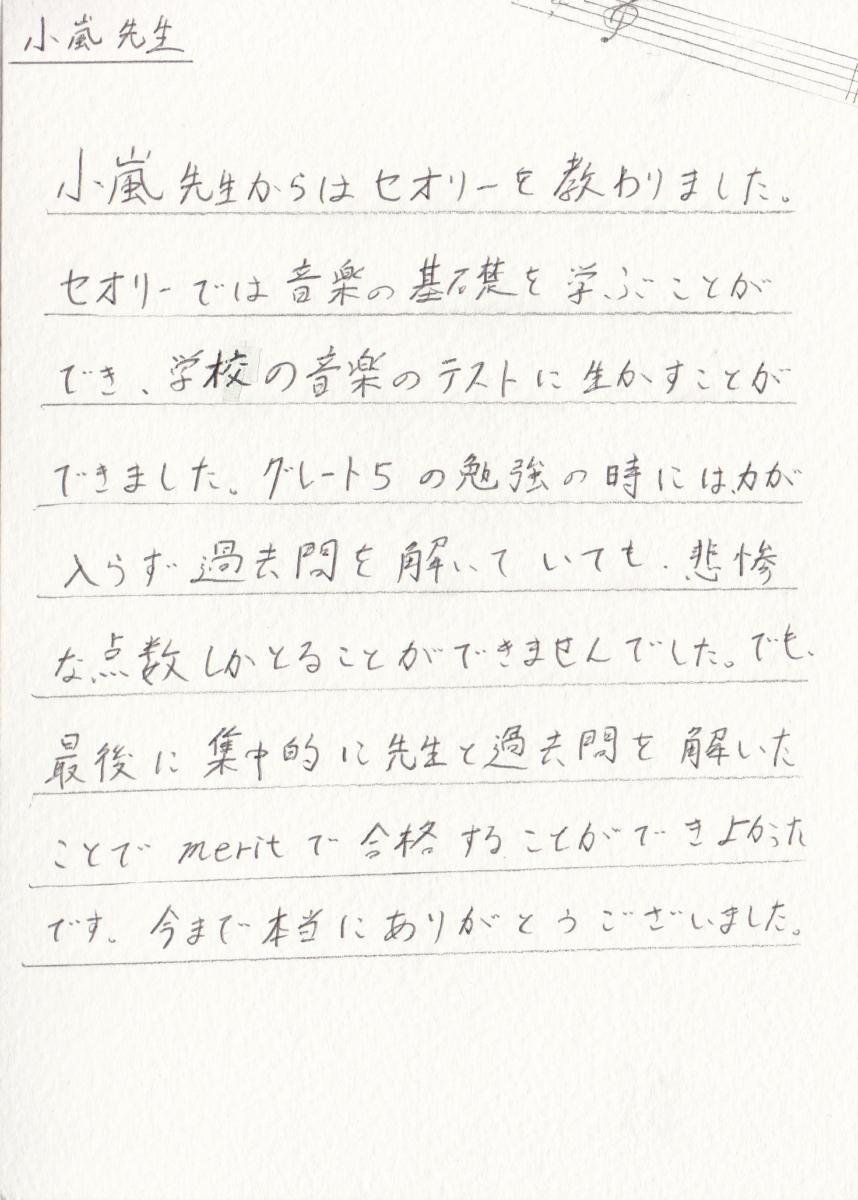 小嵐先生
小嵐先生からはセオリーを教わりました。
セオリーでは音楽の基礎を学ぶことが
でき、学校の音楽のテストに生かすことが
できました。グレート5の勉強の時には、力が
入らず過去問を解いていても、悲惨
な点数しかとることができませんでした。でも、
最後に集中的に先生と過去問を解いた
ことでmeritで合格することができよかった
です。今まで本当にありがとうございました。